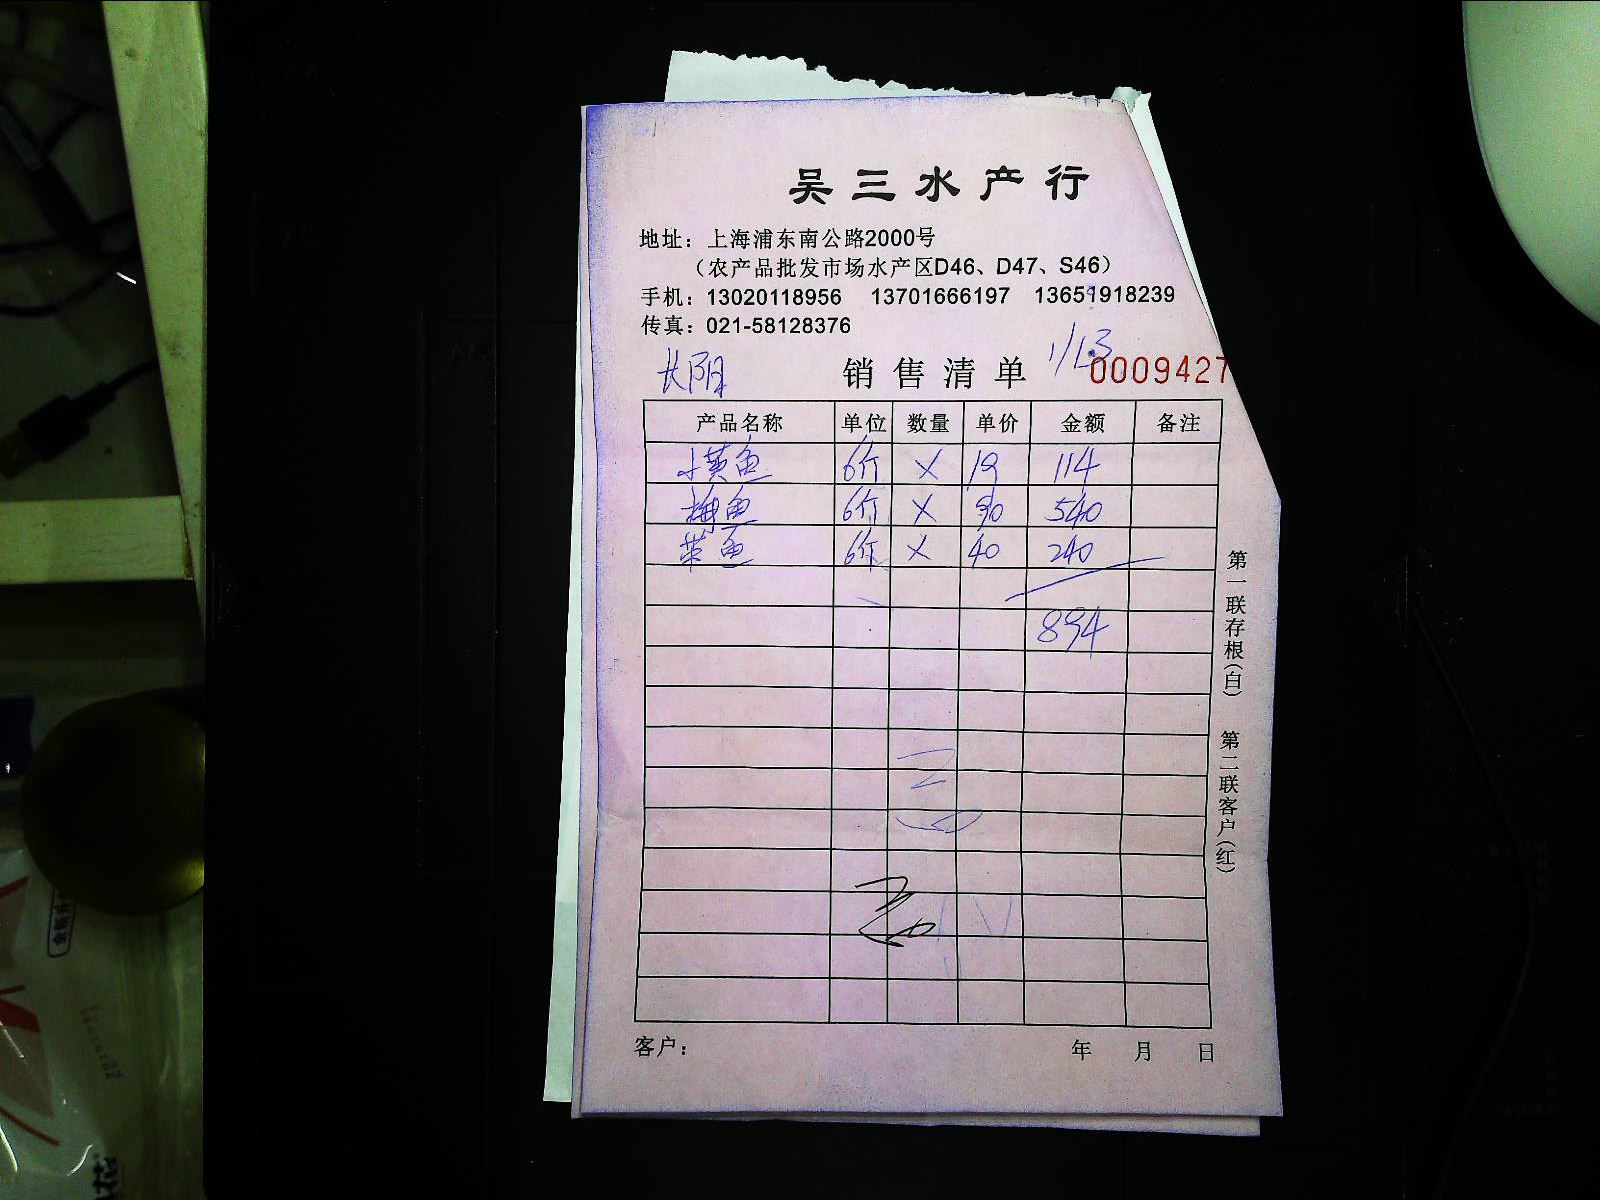 吴三水产行
地址：上海浦东南公路2000号
（农产品批发市场水产区D46、D47、S46）
手机：13020118956 13701666197 13651918239
传真：021-58128376
长阳 销售清单 1/13 0009427
产品名称 单位 数量 单价 金额 备注
小黄鱼 6斤 × 19 114
梅鱼 6斤 × 90 540
带鱼 6斤 × 40 240
894
第一联存根（白） 第二联客户（红）
客户： 年 月 日